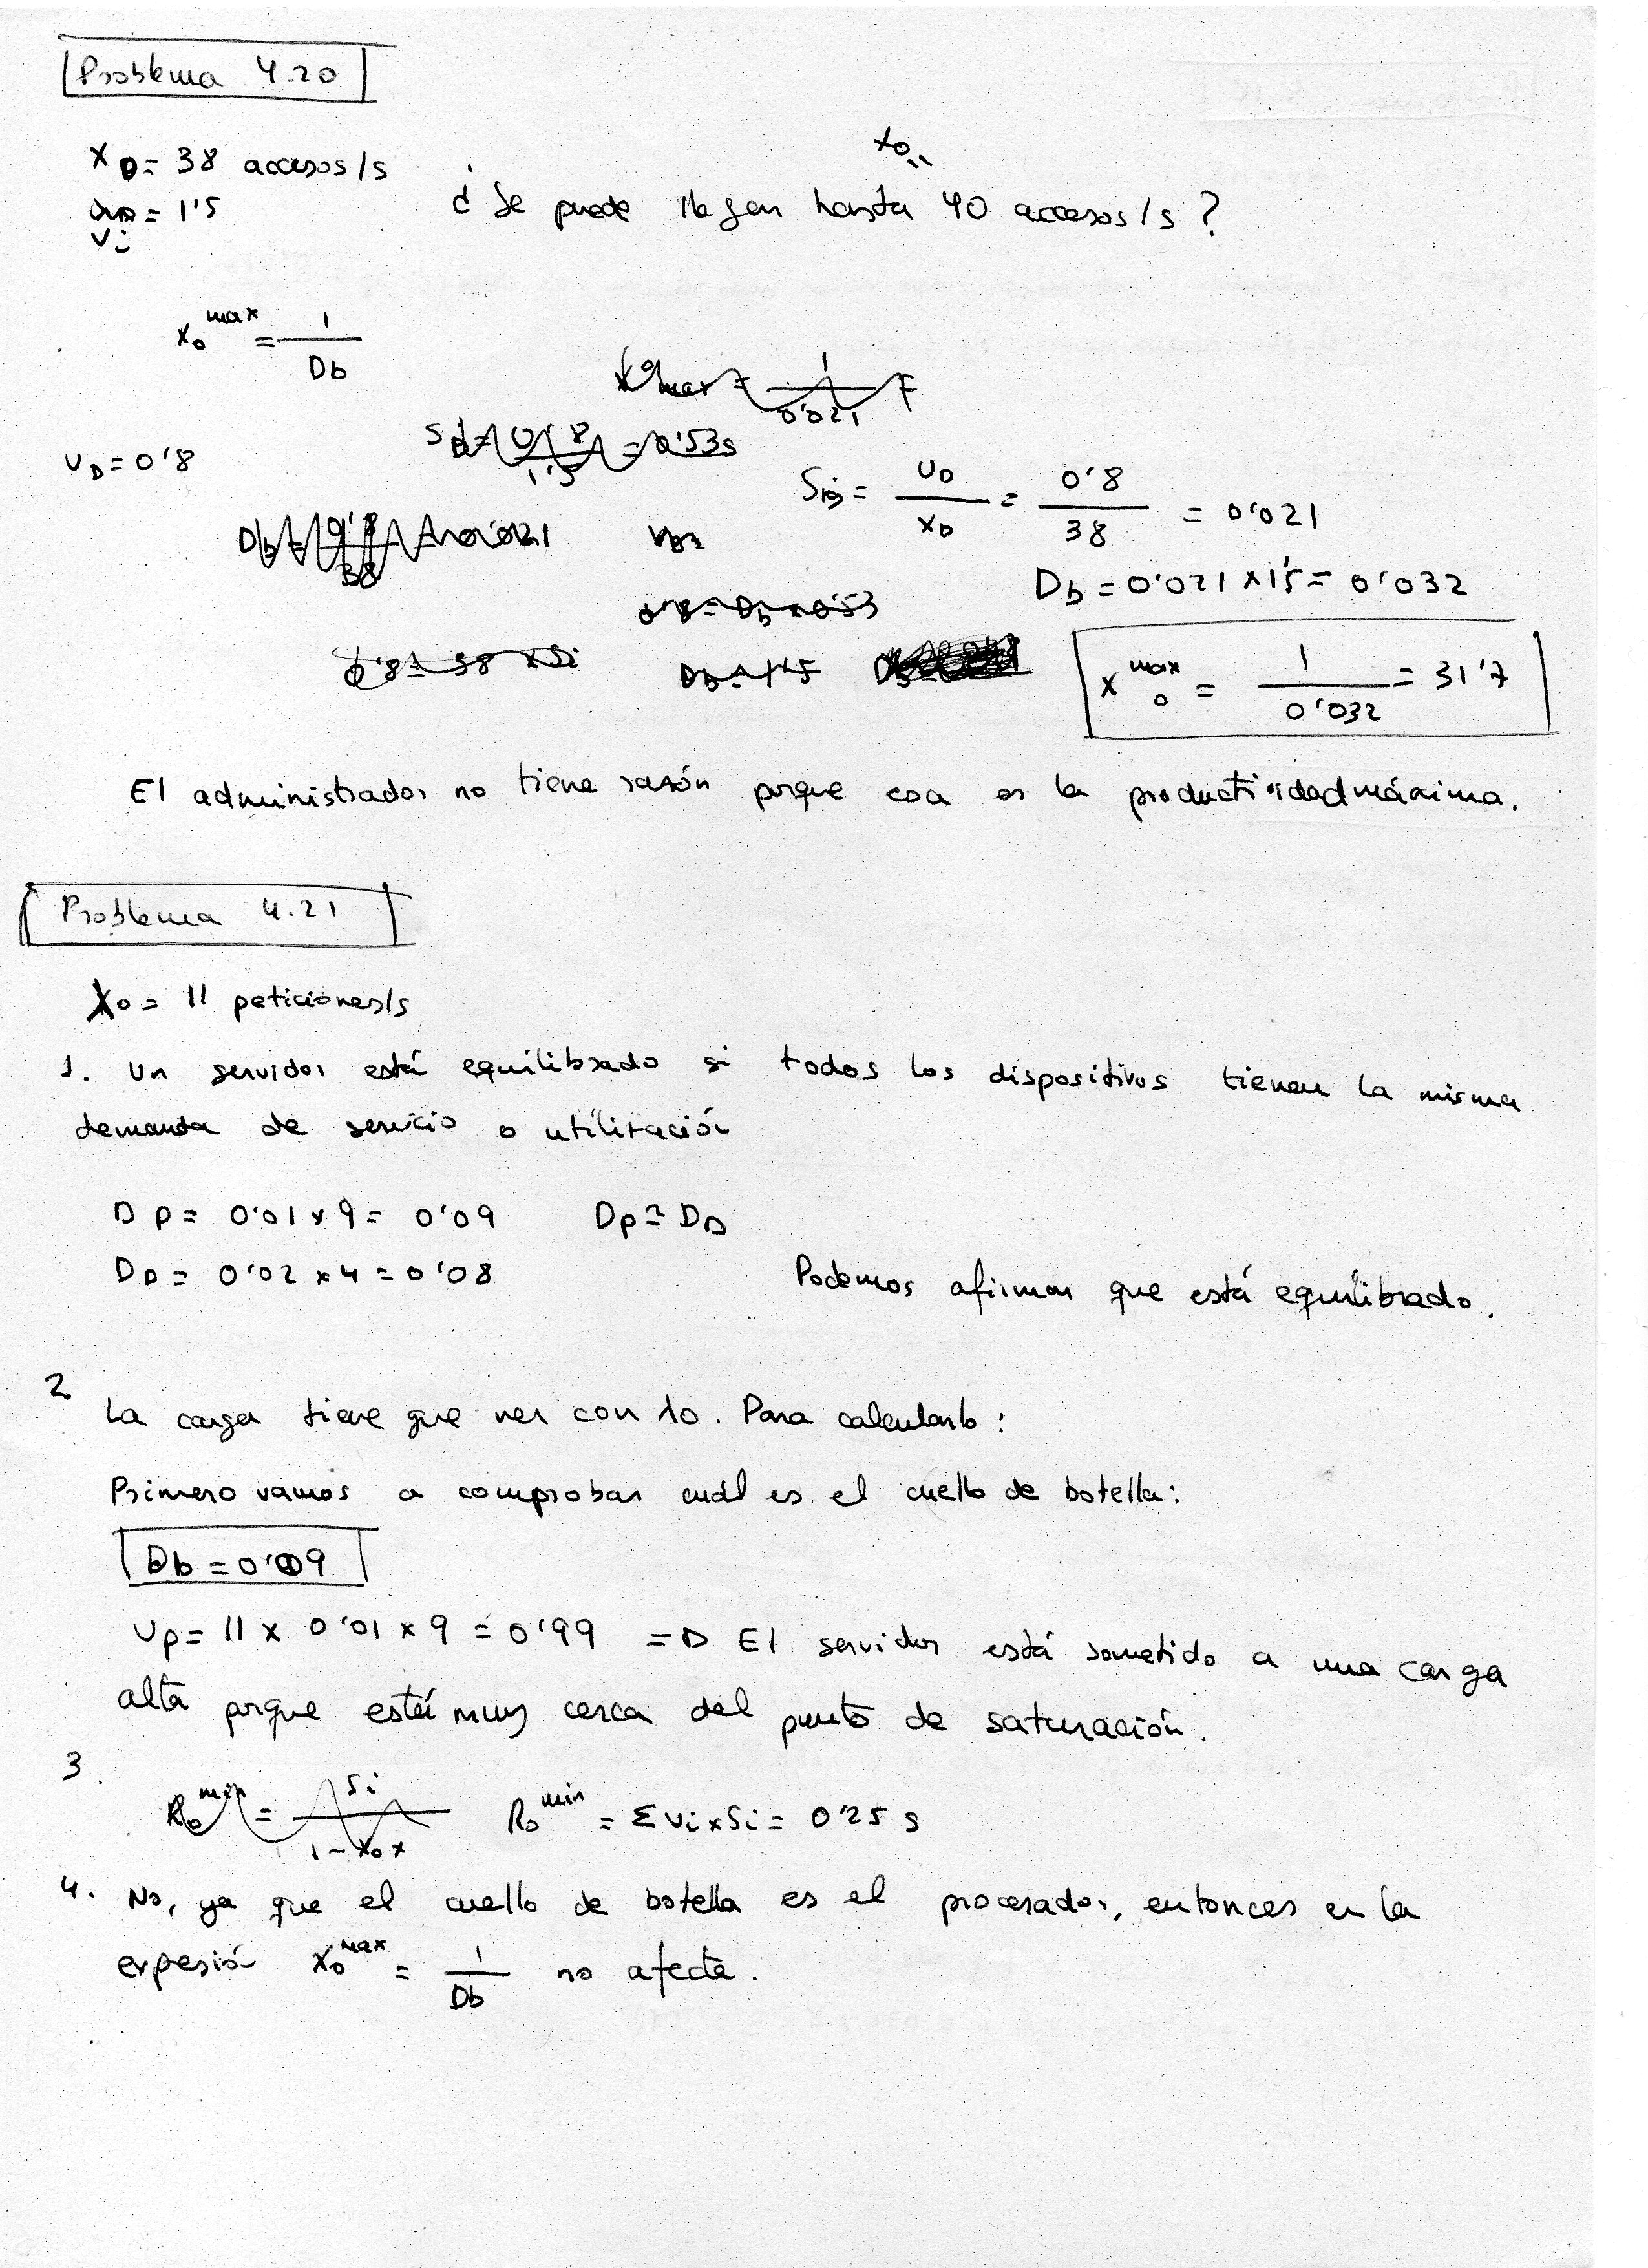 Problema 4.20
X_D = 38 accesos/s
V_i = 1'5
X_0
¿Se puede llegar hasta 40 accesos/s?
X_0^max = 1/Db
X_0max = 1/0'021 =
U_D = 0'8
S_D = 0'8/1'5 = 0'53s
S_D = U_D/X_D = 0'8/38 = 0'021
Db = 0'8/38 = 0'021
Db = 0'021 x 1'5 = 0'032
0'8 = Db x 0'53
0'8 = 38 x Si
Db = 1'5
X_0^max = 1/0'032 = 31'7
El administrador no tiene razón porque esa es la productividad máxima.
Problema 4.21
X_0 = 11 peticiones/s
1. Un servidor está equilibrado si todos los dispositivos tienen la misma
demanda de servicio o utilización
D_P = 0'01 x 9 = 0'09
D_P ≅ D_D
D_D = 0'02 x 4 = 0'08
Podemos afirmar que está equilibrado.
2
La carga tiene que ver con λ0. Para calcularlo:
Primero vamos a comprobar cuál es el cuello de botella:
Db = 0'09
U_P = 11 x 0'01 x 9 = 0'99 => El servidor está sometido a una carga
alta porque está muy cerca del punto de saturación.
3.
R_0^min = Si/1-X_0 x
R_0^min = ΣVi x Si = 0'25 s
4. No, ya que el cuello de botella es el procesador, entonces en la
expesión X_0^max = 1/Db no afecta.